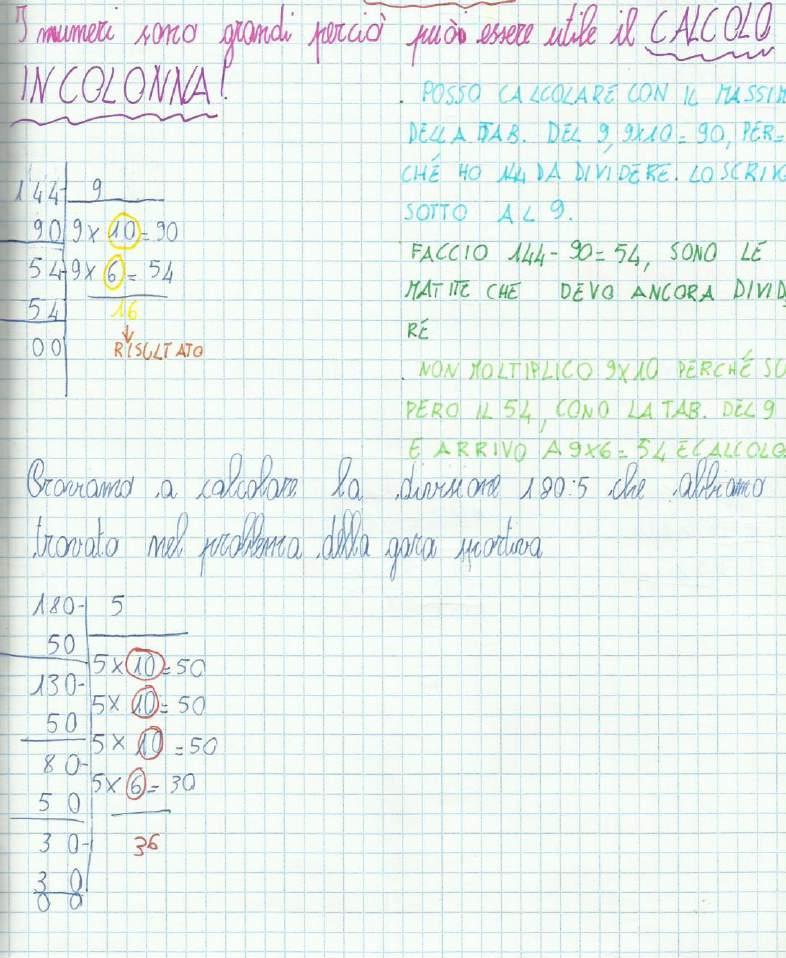 I numeri sono grandi perciò può essere utile il CALCOLO
IN COLONNA!
. POSSO CALCOLARE CON IL MASSIM
DELLA TAB. DEL 9, 9x10 = 90, PER=
CHÉ HO 144 DA DIVIDERE. LO SCRIVO
SOTTO AL 9.
FACCIO 144 - 90 = 54, SONO LE
MATITE CHE DEVO ANCORA DIVID
RE
. NON MOLTIPLICO 9x10 PERCHÉ SU
PERO IL 54, CONO LA TAB. DEL 9
E ARRIVO A 9x6 = 54 E CALCOLO
144- 9
90 9 x 10 = 90
54- 9 x 6 = 54
54 16
00 RISULTATO
Proviamo a calcolare la divisione 180:5 che abbiamo
trovato nel problema della gara sportiva
180- 5
50
5 x 10 = 50
130-
5 x 10 = 50
50
5 x 10 = 50
80-
5 x 6 = 30
50
30- 36
30
00